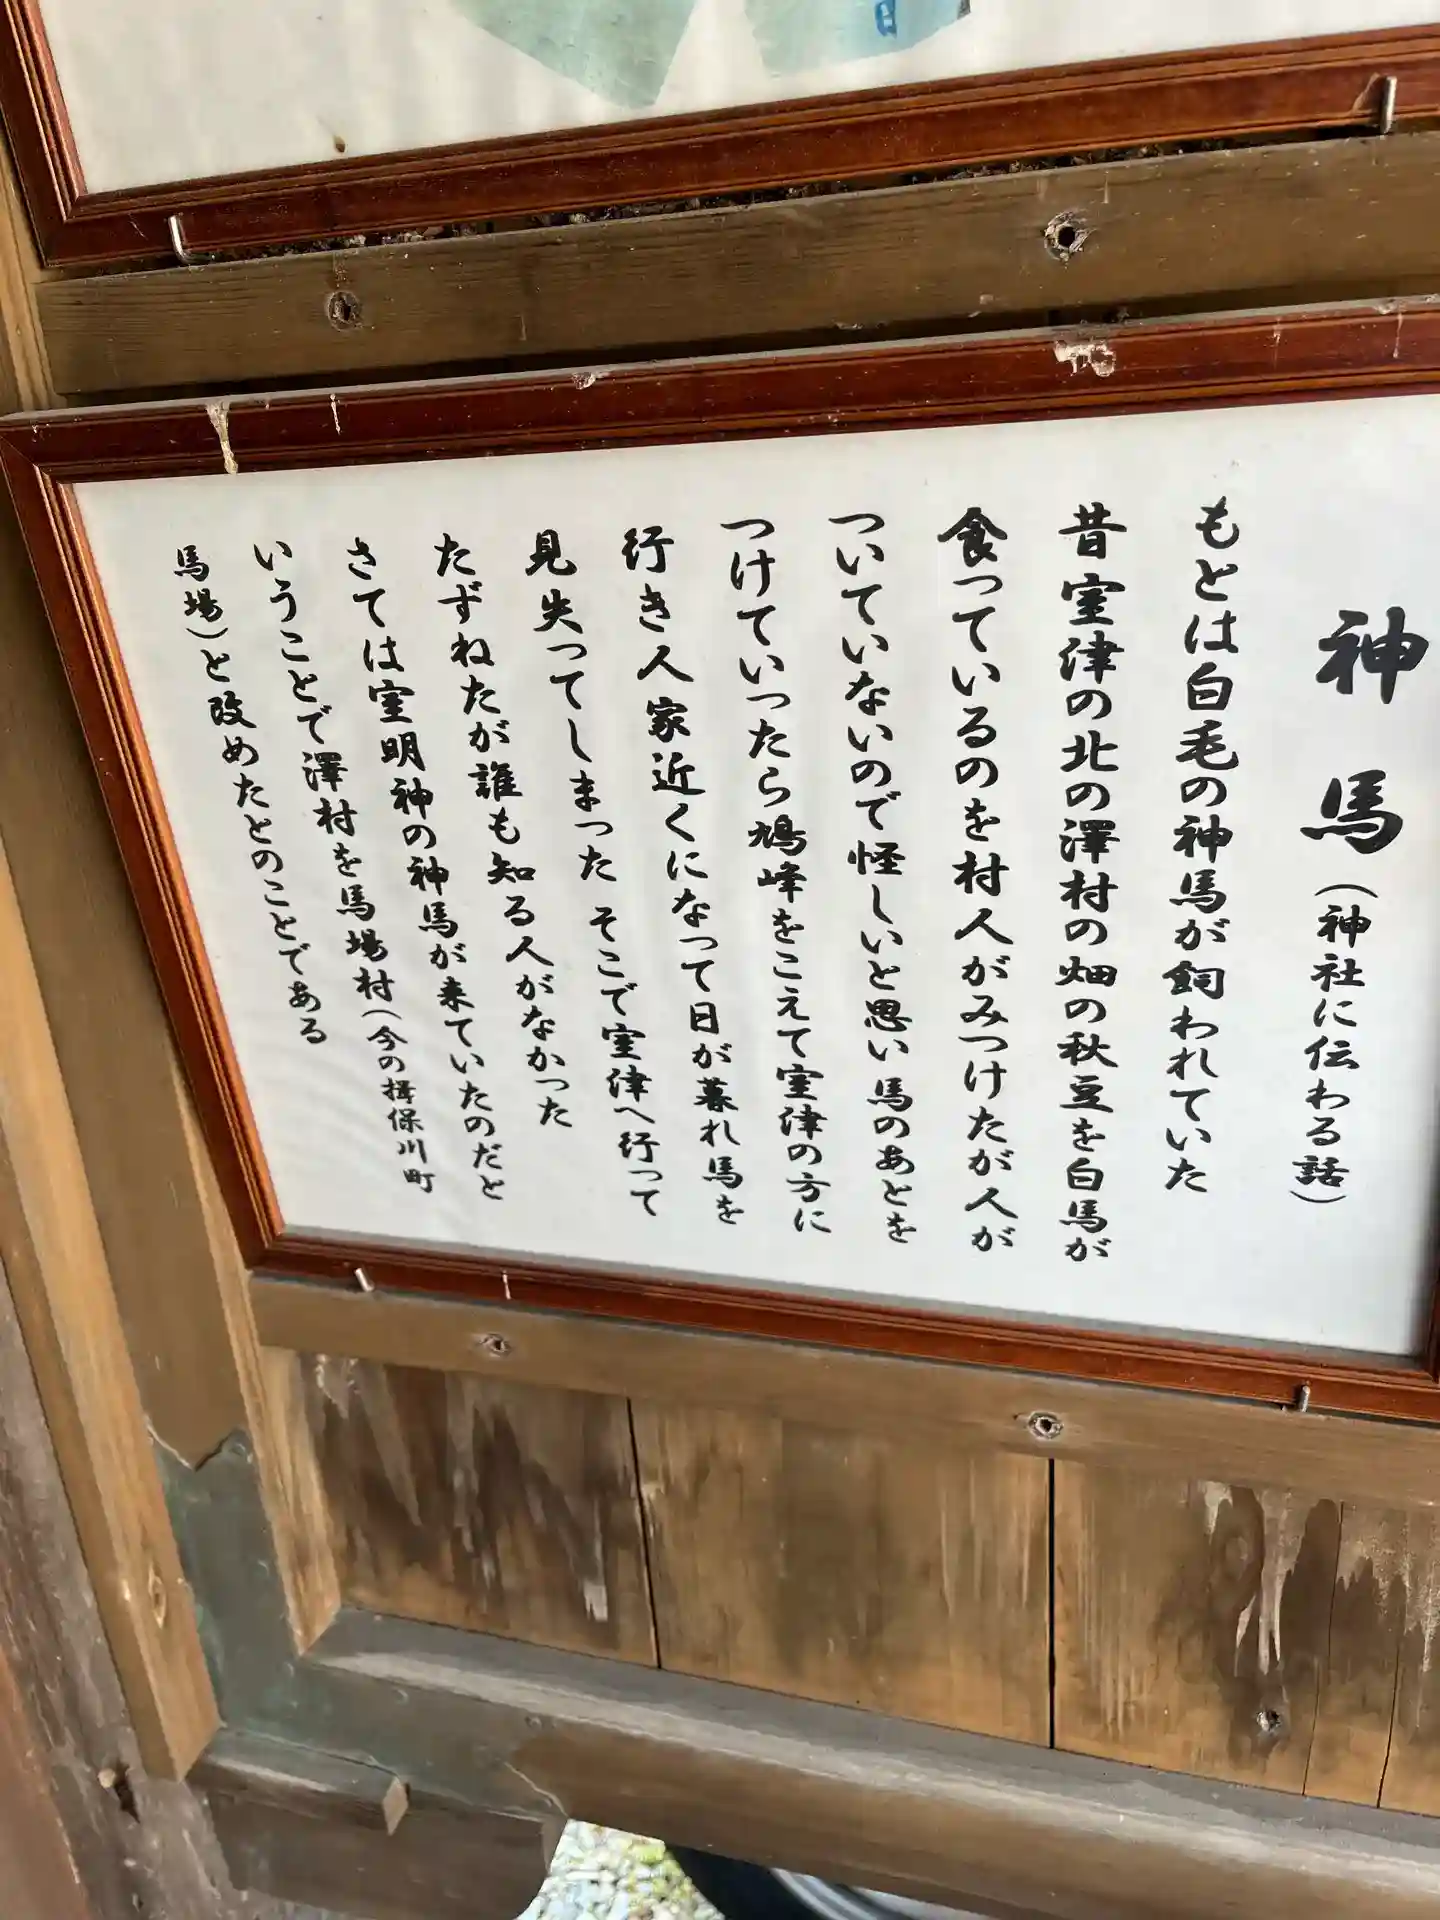 日
神馬(神社に伝わる話)
もとは白毛の神馬が飼われていた
昔室津の北の澤村の畑の秋豆を白馬が
食っているのを村人がみつけたが人が
ついていないので怪しいと思い馬のあとを
つけていったら鳩峰をこえて室津の方に
行き人家近くになって日が暮れ馬を
見失ってしまった そこで室津へ行って
たずねたが誰も知る人がなかった
さては室明神の神馬が来ていたのだと
いうことで澤村を馬場村(今の揖保川町
馬場)と改めたとのことである